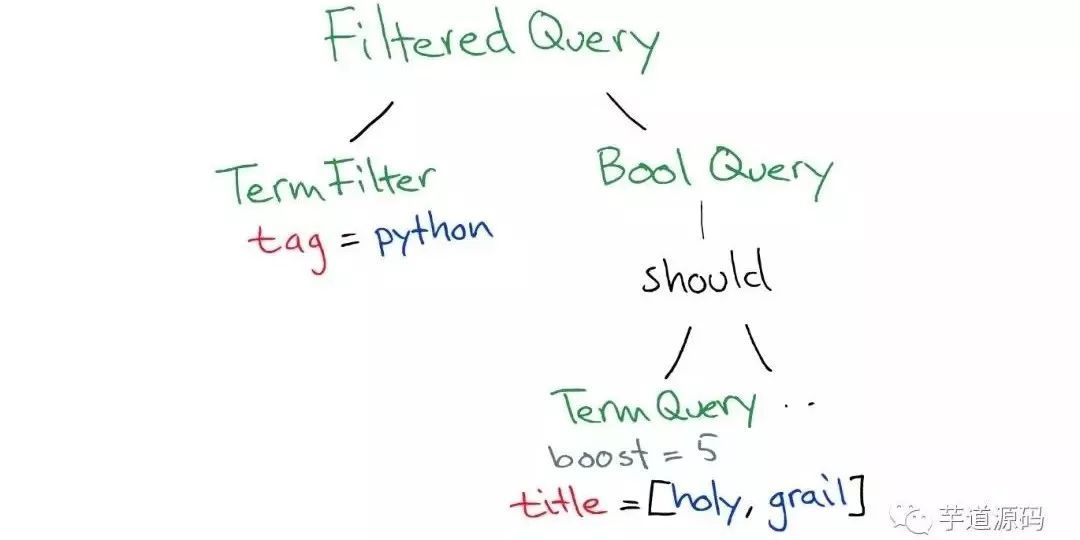 Filtered Query
TermFilter
tag = python
Bool Query
should
TermQuery ..
boost = 5
title = [holy, grail]
芋道源码